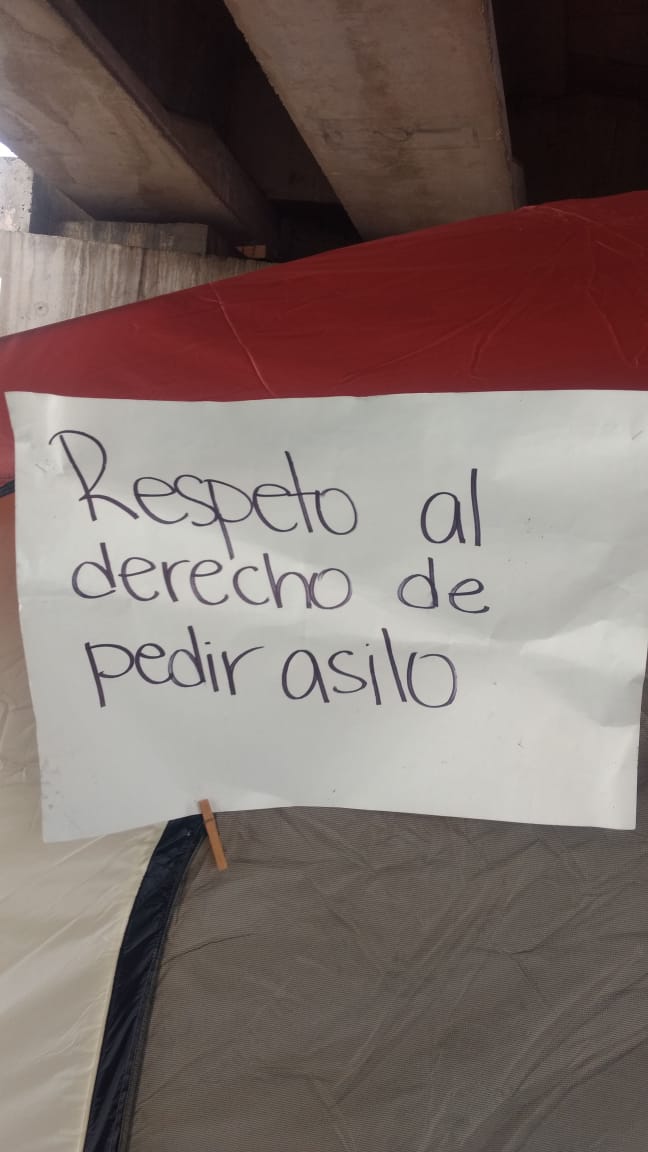 Respeto al
derecho de
pedir asilo